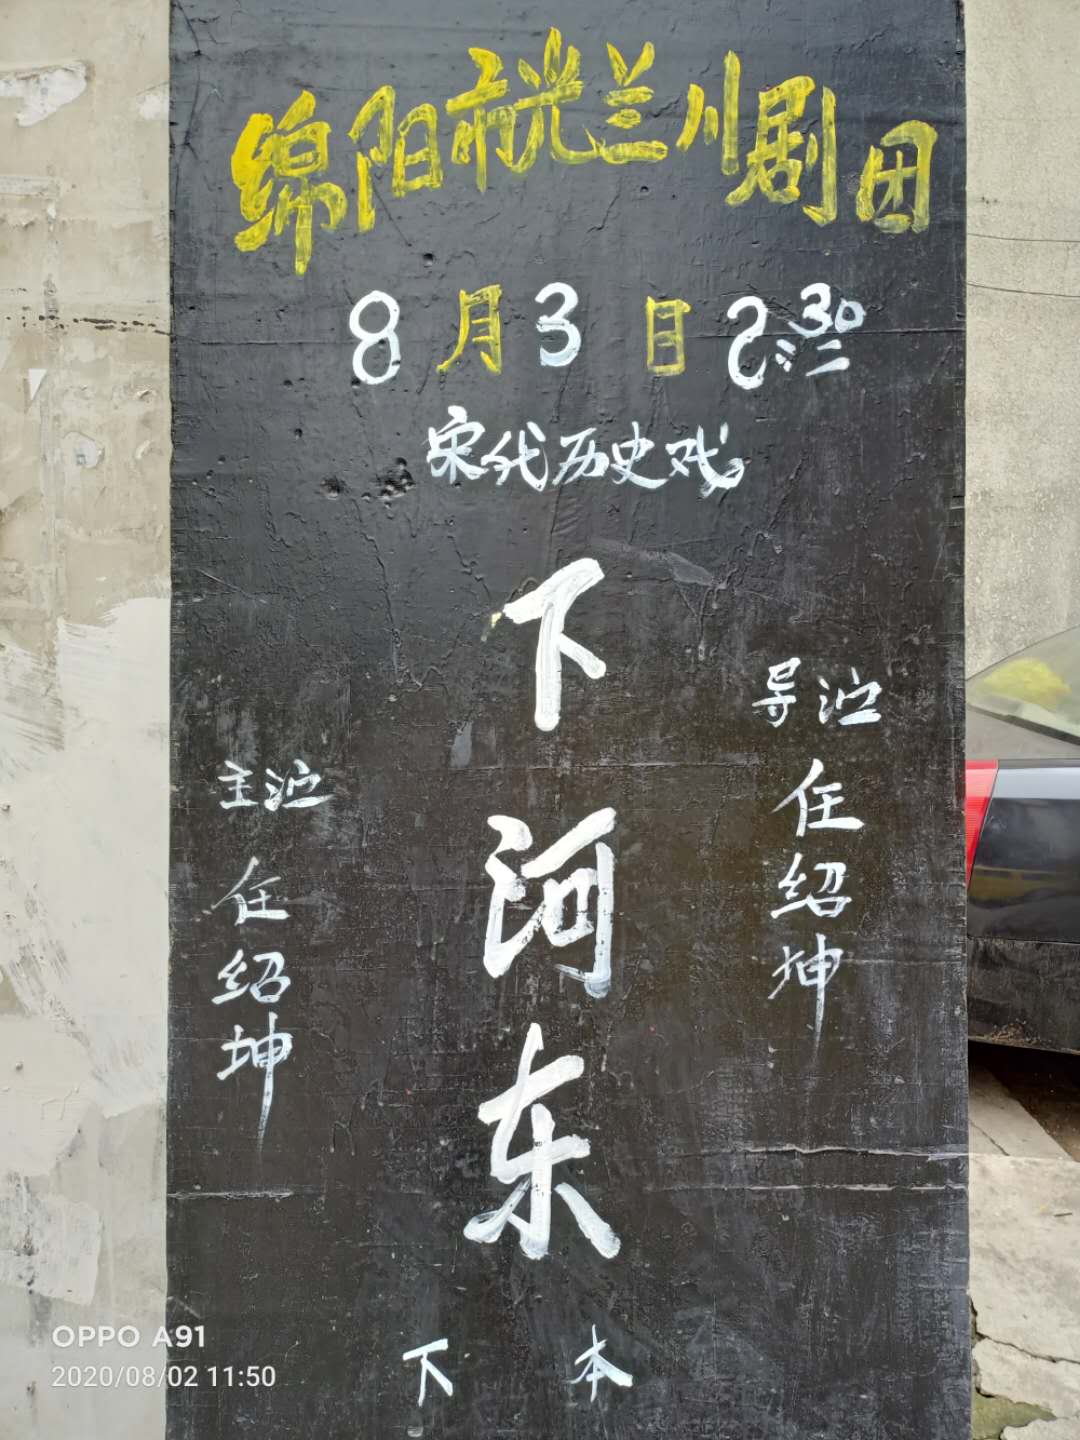 绵阳市光兰川剧团
8月3日 2:30
宋代历史戏
下河东
导演 任绍坤
主演 任绍坤
下本
OPPO A91
2020/08/02 11:50